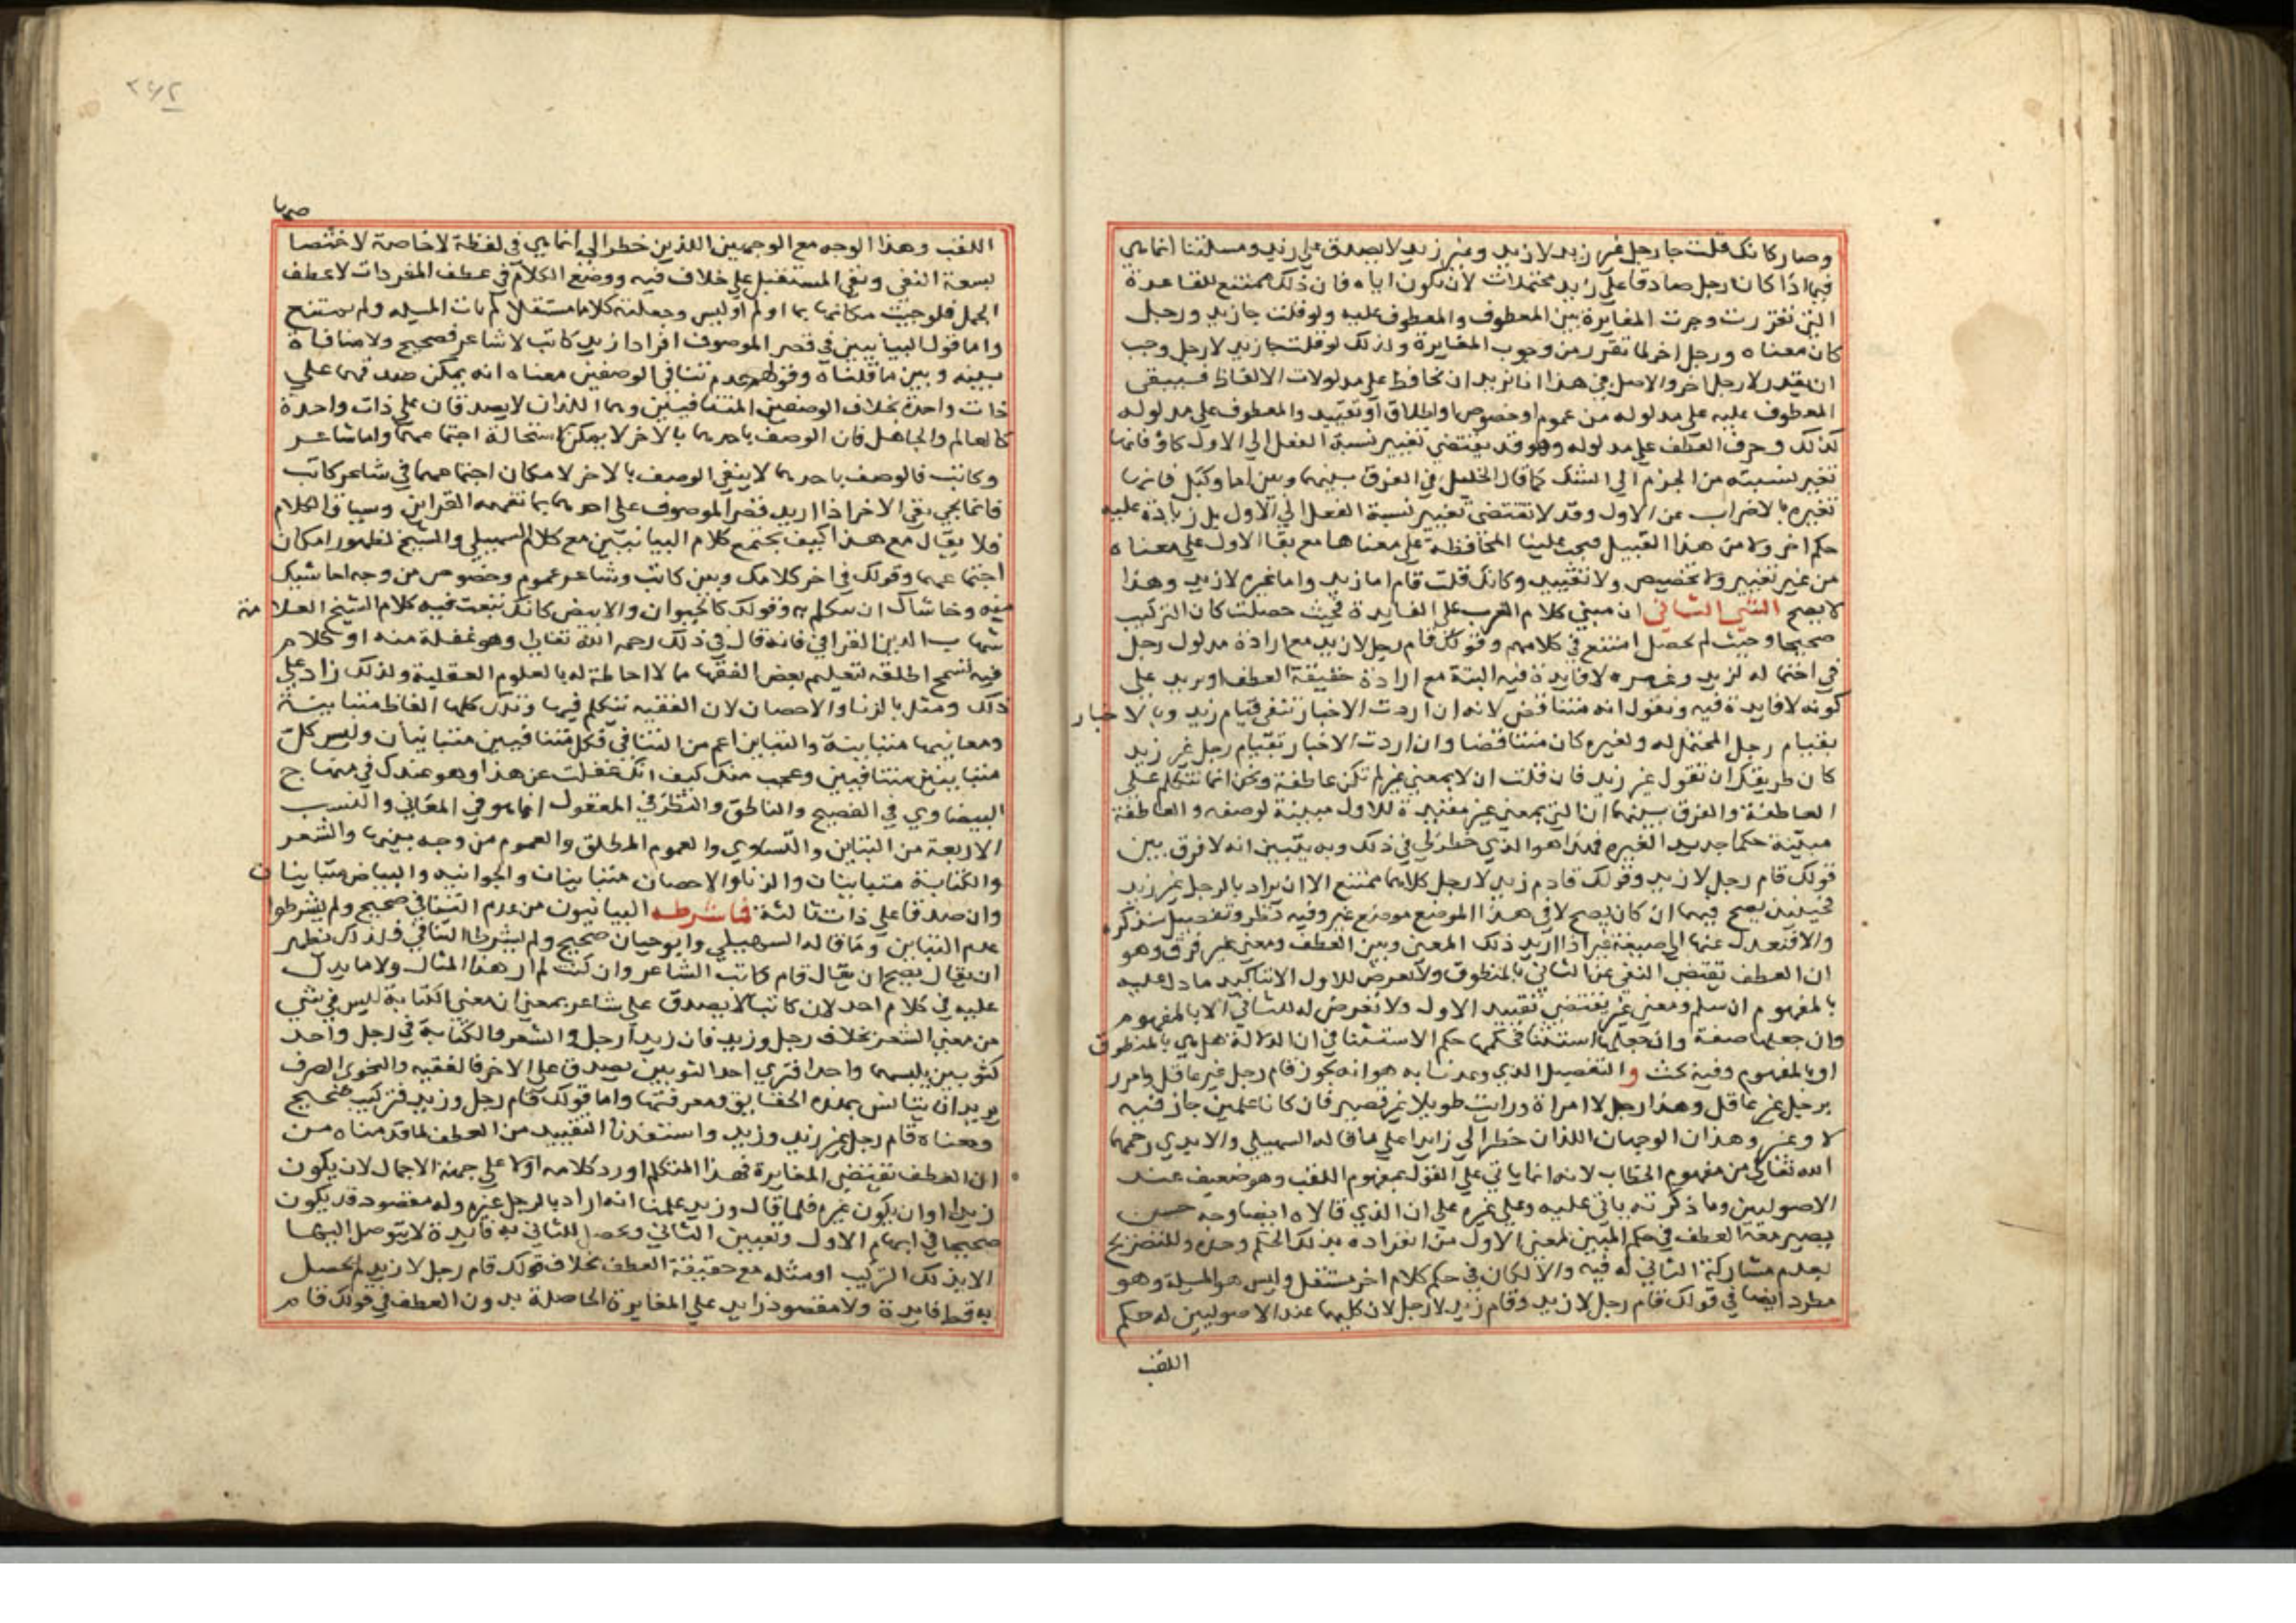 وصار كانك قلت جا رجل غير زيد لا زيد وغير زيد لا يصدق على زيد ومسئلتنا انما هي
فيما اذا كان رجل صادقا على زيد محتملات لان يكون اياه فان ذلك ممتنع للقاعدة
التي تقررت وجرت المغايرة بين المعطوف والمعطوف عليه ولو قلت جا زيد ورجل
كان معناه ورجل اخر لما تقرر من وجوب المغايرة ولذلك لو قلت جا زيد لا رجل وجب
ان يقدر لا رجل اخر والاصل في هذا انا نريد ان نحافظ على مدلولات الالفاظ فيبقى
المعطوف عليه على مدلوله من عموم او خصوص او اطلاق او تقييد والمعطوف على مدلوله
كذلك وحرف العطف على مدلوله وهو قد يقتضي تغيير نسبة الفعل الى الاول كاو فانها
تغير نسبته من الجزم الى الشك كما قال الخليل في الفرق بينها وبين اما وكبل فانها
تغيره بالاضراب عن الاول وقد لا تقتضي تغيير نسبة الفعل الى الاول بل زيادة عليه
حكم اخر ولا من هذا القبيل فيجب علينا المحافظة على معناها مع بقا الاول على معناه
من غير تغيير ولا تخصيص ولا تقييد وكانك قلت قام اما زيد واما غيره لا زيد وهذا
لا يصح الشي الثاني ان مبنى كلام العرب على الفايدة فحيث حصلت كان التركيب
صحيحا وحيث لم يحصل امتنع في كلامهم وقولك قام رجل لا زيد مع ارادة مدلول رجل
في احتماله لزيد وغيره لا فايدة فيه البتة مع ارادة حقيقة العطف او يزيد على
كونه لا فايدة فيه ونقول انه متناقض لانه ان اردت الاخبار بنفي قيام زيد وبالاخبار
بقيام رجل المحتمل له ولغيره كان متناقضا وان اردت الاخبار بقيام رجل غير زيد
كان طريقك ان تقول غير زيد فان قلت ان لا بمعنى غير لم تكن عاطفة ونحن انما نتكلم على
العاطفة والفرق بينهما ان التي بمعنى غير مقيدة للاول مبينة لوصفه والعاطفة
مبينة حكما جديدا لغيره فهذا هو الذي خطر لي في ذلك وبه يتبين انه لا فرق بين
قولك قام رجل لا زيد وقولك قام زيد لا رجل كلاهما ممتنع الا ان يراد بالرجل غير زيد
فحينئذ يصح فيهما ان كان يصح لا في هذا الموضع موضع غير وفيه نظر وتفصيل سنذكره
والا فنعدل عنها الى صيغة غير اذا اريد ذلك المعنى وبين العطف ومعنى غير فرق وهو
ان العطف يقتضي النفي عن الثاني بالمنطوق ولا تعرض للاول الا بتاكيد ما دل عليه
بالمفهوم ان سلم ومعنى غير يقتضي تقييد الاول ولا تعرض له للثاني الا بالمفهوم
وان جعلها صفة وان جعلها استثنا فحكمها حكم الاستثنا في ان الدلالة هل هي بالمنطوق
او بالمفهوم وفيه بحث والتفصيل الذي وعدنا به هو انه يجوز قام رجل غير عاقل وامرر
برجل غير عاقل وهذا رجل لا امراة ورايت طويلا غير قصير فان كانا علمين جاز فيه
لا وغير وهذان الوجهان اللذان خطرا لي زايدا على ما قاله السهيلي والابدي رحمهما
الله تعالى من مفهوم الخطاب لانه انما ياتي على القول بمفهوم اللقب وهو ضعيف عند
الاصوليين وما ذكرته ياتي عليه وعلى غيره على ان الذي قالاه ايضا وجه حسن
يصير معه العطف في حكم المبين لمعنى الاول من انفراده بذلك الحكم وحده وللتصريح
بعدم مشاركة الثاني له فيه والا لكان في حكم كلام اخر مستقل وليس هو المسيلة وهو
مطرد ايضا في قولك قام رجل لا زيد وقام زيد لا رجل لان كليهما عند الاصوليين له حكم
اللقب
صها
اللقب وهذا الوجه مع الوجهين اللذين خطرا لي انما هي في لفظة لا خاصة لاختصا
بسعة النفي ونفي المستقبل على خلاف فيه ووضع الكلام في عطف المفردات لا عطف
الجمل فلو جيت مكانها بما او لم او ليس وجعلته كلاما مستقلا لم يات المسيله ولم يمتنع
واما قول البيانيين في قصر الموصوف افرادا زيد كاتب لا شاعر فصحيح ولا منافاة
بينه وبين ما قلناه وقولهم عدم تنافي الوصفين معناه انه يمكن صدقهما على
ذات واحدة بخلاف الوصفين المتنافيين وهما اللذان لا يصدقان على ذات واحدة
كالعالم والجاهل فان الوصف باحدهما بالاخر لا يمكن استحالة اجتماعهما واما شاعر
وكاتب فالوصف باحدهما لا ينفي الوصف بالاخر لامكان اجتماعهما في شاعر كاتب
فانما يجي نفي الاخر اذا اريد قصر الموصوف على احدهما بما تفهمه القراين وسياق الكلام
فلا يقال مع هذا كيف يجتمع كلام البيانيين مع كلام السهيلي والشيخ لظهور امكان
اجتماعهما وقولك في اخر كلامك وبين كاتب وشاعر عموم وخصوص من وجه احاشيك
منه وحاشاك ان تتكلم به وقولك كالحيوان والابيض كانك تبعت فيه كلام الشيخ العلامة
شهاب الدين القرافي فانه قال في ذلك رحمه الله تعالى وهو غفلة منه او كلام
فيه تسمح اطلقه لتعليم بعض الفقها مما لا احاطة له بالعلوم العقلية ولذلك زاد على
ذلك ومثل بالزنا والاحصان لان الفقيه يتكلم فيهما وتلك كلها الفاظ متباينة
ومعانيها متباينة والتباين اعم من التنافي فكل متنافيين متباينان وليس كل
متباينين متنافيين وعجب منك كيف انك غفلت عن هذا وهو عندك في منهاج
البيضاوي في الفصيح والناطق والنظر في المعقول انما هو في المعاني والنسب
الاربعة من التباين والتساوي والعموم المطلق والعموم من وجه بينها والشعر
والكتابة متباينان والزنا والاحصان متباينان والحيوانيه والبياض متباينان
وان صدقا على ذات ثالثة فاشرطه البيانيون من عدم التنافي صحيح ولم يشرطوا
عدم التباين وما قاله السهيلي وابو حيان صحيح ولم يشرط التنافي فلذلك نظهر
ان يقال يصح ان يقال قام كاتب لا شاعر وان كنت لم ار هذا المثال ولا ما يدل
عليه في كلام احد لان كاتبا لا يصدق على شاعر بمعنى ان معنى الكتابة ليس في شي
من معنى الشعر بخلاف رجل وزيد فان زيدا رجل والشعر والكتابة في رجل واحد
كثوبين يلبسهما واحد افترى احد الثوبين يصدق على الاخر فالفقيه والنحوي الصرف
يريد ان يتانس بهذه الحقايق ومعرفتها واما قولك قام رجل وزيد فتركيب صحيح
ومعناه قام رجل غير زيد وزيد واستفدنا التقييد من العطف لما قدمناه من
ان العطف يقتضي المغايرة فهذا المتكلم اورد كلامه اولا على جهة الاجمال لان يكون
زيدا او ان يكون غيره فلما قال وزيد علمنا انه اراد بالرجل غيره وله مقصود قد يكون
صحيحا في ابهام الاول وتعيين الثاني ويحصل للثاني به فايدة لا يتوصل اليها
الا بذلك التركيب او مثله مع حقيقة العطف بخلاف قولك قام رجل لا زيد لم يحصل
به قط فايدة ولا مقصود زايد على المغايرة الحاصلة بدون العطف في قولك قام